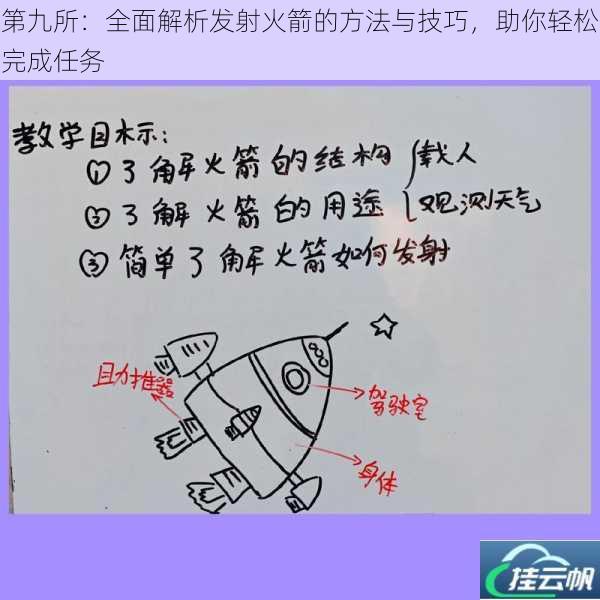 第九所：全面解析发射火箭的方法与技巧，助你轻松
完成任务
教学目标：
①了解火箭的结构 载人
②了解火箭的用途 观测天气
③简单了解火箭如何发射
助力推器
驾驶室
身体
挂云帆